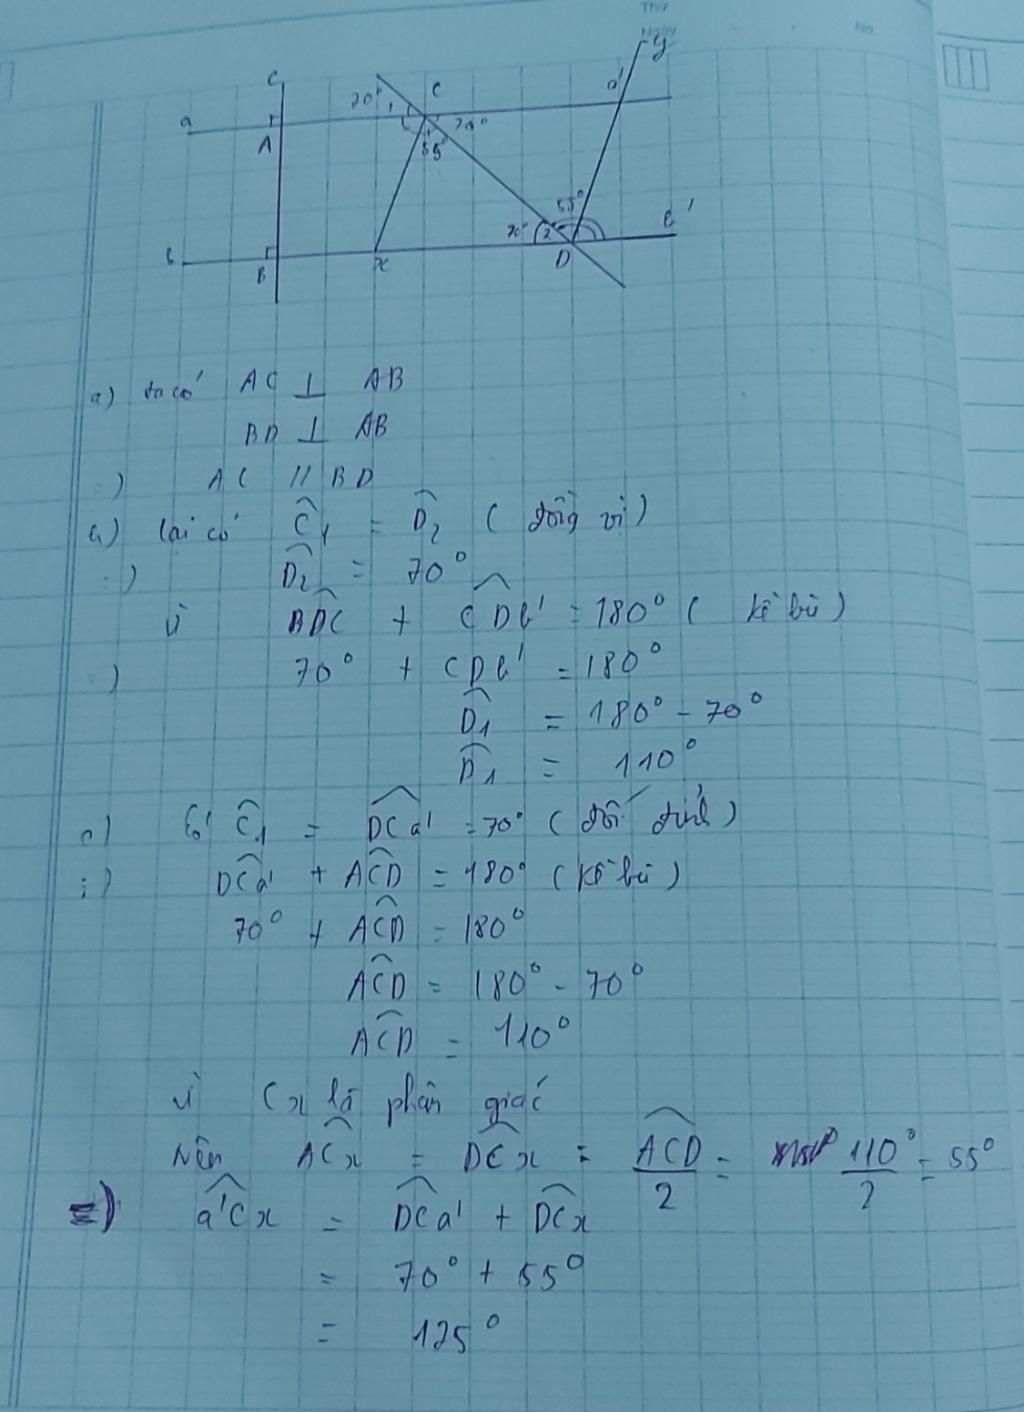 Thứ
Ngày
No.
c C a' y
70° 1 70°
a A 55°
55°
70° 2 b'
b B x D
a) ta có AC ⊥ AB
BD ⊥ AB
=) AC // BD
b) lại có Ĉ₁ = D̂₂ (đồng vị)
=) D̂₂ = 70°
Vì BD̂C + CD̂b' = 180° (kề bù)
=) 70° + CDb' = 180°
D̂₁ = 180° - 70°
D̂₁ = 110°
c) Có Ĉ₁ = DĈa' = 70° (đối đỉnh)
=) DĈa' + AĈD = 180° (kề bù)
70° + AĈD = 180°
AĈD = 180° - 70°
AĈD = 110°
Vì Cx là phân giác
Nên AĈx = DĈx = AĈD/2 = 110°/2 = 55°
=) a'Ĉx = DĈa' + DĈx
= 70° + 55°
= 125°